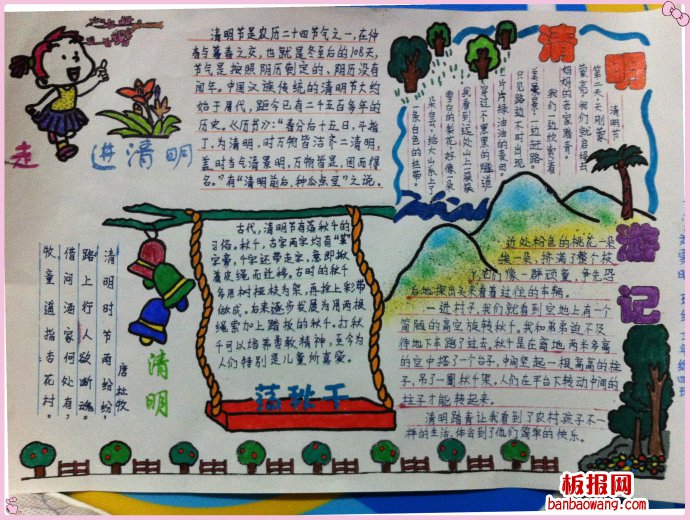 走进清明
清明节是农历二十四节气之一,在仲
春与暮春之交,也就是冬至后的108天,
节气是按照阴历制定的、阴历没有
闰年。中国汉族传统的清明节大约
始于周代,距今已有二十五百多年的
历史。《历书》:"春分后十五日,斗指
丁,为清明,时万物皆洁齐二清明,
盖时当气清景明,万物皆显,因而得
名。"有"清明前后,种瓜点豆"之说。
清明
清明节
第二天,天刚蒙
蒙亮,我们就启程去
妈妈的老家踏青。
我们一边欣赏着
美景,一边赶路。
只见路边不时出现
一片片绿油油的麦田。
穿过一个黑黑的隧道
我看到远处山上一簇簇
雪白的梨花,好像一朵
朵白云,给大山系上了
一条白色的丝带。
游记
近处粉色的桃花一朵
挨一朵,挤满了整个枝
它们像一群顽童,争先恐
后地探出头来看着过往的车辆。
一进村子,我们就看到空地上有一个
简陋的高空旋转秋千。我和弟弟迫不及
待地下车跑了过去,秋千是在离地两米多高
的空中搭了一个台子,中间竖起一根高高的柱
子,吊了一圈秋千架,人们在平台下转动中间的
柱子才能转起来。
清明踏青让我看到了农村孩子不一
样的生活,体会到了他们简单的快乐。
古代,清明节有荡秋千的
习俗。秋千,古字两字均有"革"
字旁,千字还带走字,意即揪
着皮绳而迁移。古时的秋千
多用树桠枝为架,再拴上彩带
做成。后来逐步发展为用两根
绳索加上踏板的秋千。打秋
千可以培养勇敢精神,至今为
人们特别是儿童所喜爱。
荡秋千
清明
唐杜牧
清明时节雨纷纷,
路上行人欲断魂。
借问酒家何处有,
牧童遥指杏花村。
板报网
banbaowang.com